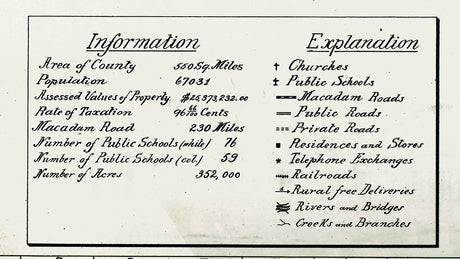 Information
Area of County 550 Sq. Miles
Population 67031
Assessed Values of Property $25,373,232.00
Rate of Taxation 96 66/100 Cents
Macadam Road 230 Miles
Number of Public Schools (while) 76
Number of Public Schools (col.) 59
Number of Acres 352,000
Explanation
Churches
Public Schools
Macadam Roads
Public Roads
Private Roads
Residences and Stores
Telephone Exchanges
Railroads
Rural free Deliveries
Rivers and Bridges
Creeks and Branches